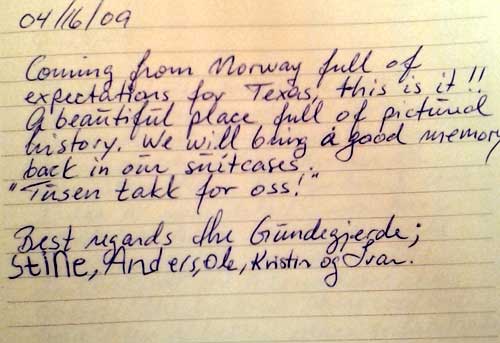 04/16/09
Coming from Norway full of
expectations for Texas, this is it!!
A beautiful place full of pictured
history. We will bring a good memory
back in our suitcases.
"Tusen takk for oss!"
Best regards the Gundegjerde;
Stine, Anders, Ole, Kristin og Ivar.